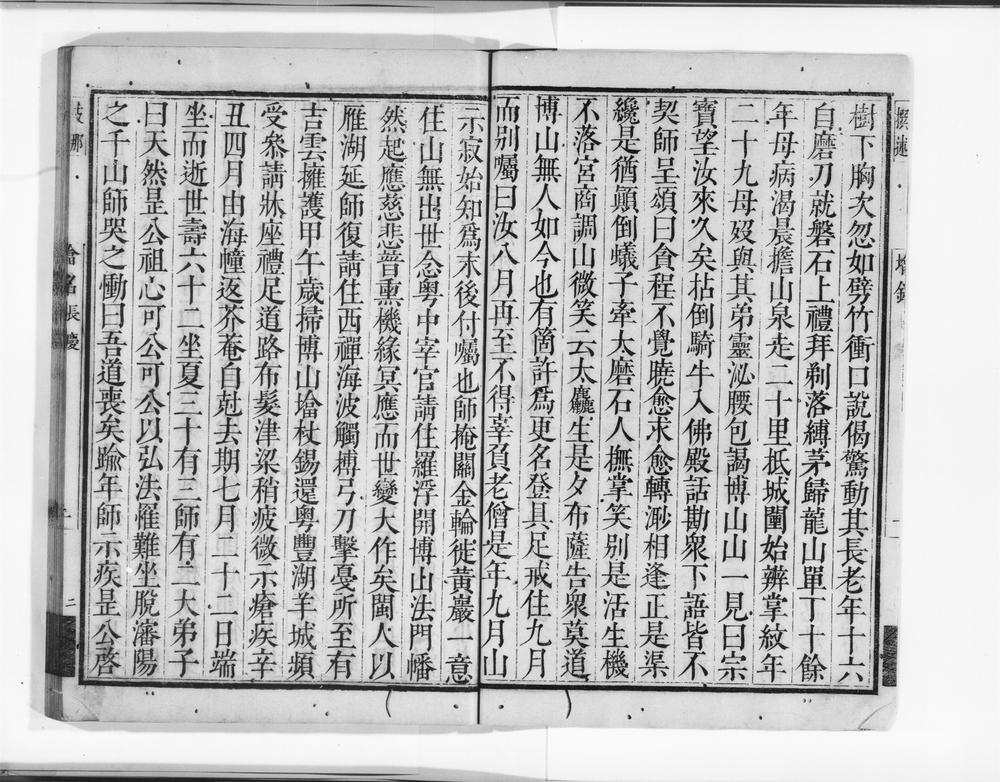 樹下胸次忽如劈竹衝口說偈驚動其長老年十六
自磨刀就磐石上禮拜剃落縛茅歸龍山單丁十餘
年母病渴晨擔山泉走二十里抵城闉始辨掌紋年
二十九母歿與其弟靈泌腰包謁博山山一見曰宗
寶望汝來久矣枯倒騎牛入佛殿話勘衆下語皆不
契師呈頌曰貪程不覺曉愈求愈轉渺相逢正是渠
纔是猶顛倒蟻子牽大磨石人撫掌笑别是活生機
不落宮商調山微笑云太麤生是夕布薩告衆莫道
博山無人如今也有箇許爲更名登具足戒住九月
而别囑曰汝八月再至不得辜負老僧是年九月山
示寂始知爲末後付囑也師掩關金輪徙黃巖一意
住山無出世念粵中宰官請住羅浮開博山法門幡
然起應慈悲普熏機緣冥應而世變大作矣閩人以
雁湖延師復請住西禪海波觸搏弓刀擊戞所至有
吉雲擁護甲午歲掃博山墖杖錫還粵豐湖羊城頻
受叅請牀座禮足道路布髮津梁稍疲微示瘡疾辛
丑四月由海幢返芥菴自尅去期七月二十二日端
坐而逝世壽六十二坐夏三十有三師有二大弟子
曰天然昰公祖心可公可公以弘法罹難坐脫瀋陽
之千山師哭之慟曰吾道喪矣踰年師示疾昰公啓